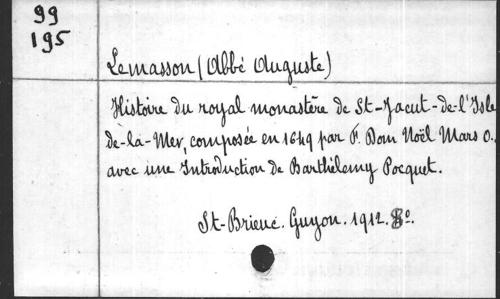 99
195
Lemasson (Abbé Auguste)
Histoire du royal monastère de St-Jacut-de-l'Isle
de-la-Mer, composée en 1649 par F. Dom Noël Mars O.
avec une Introduction de Barthélemy Pocquet.
St-Brieuc. Guyon. 1912. 8o.